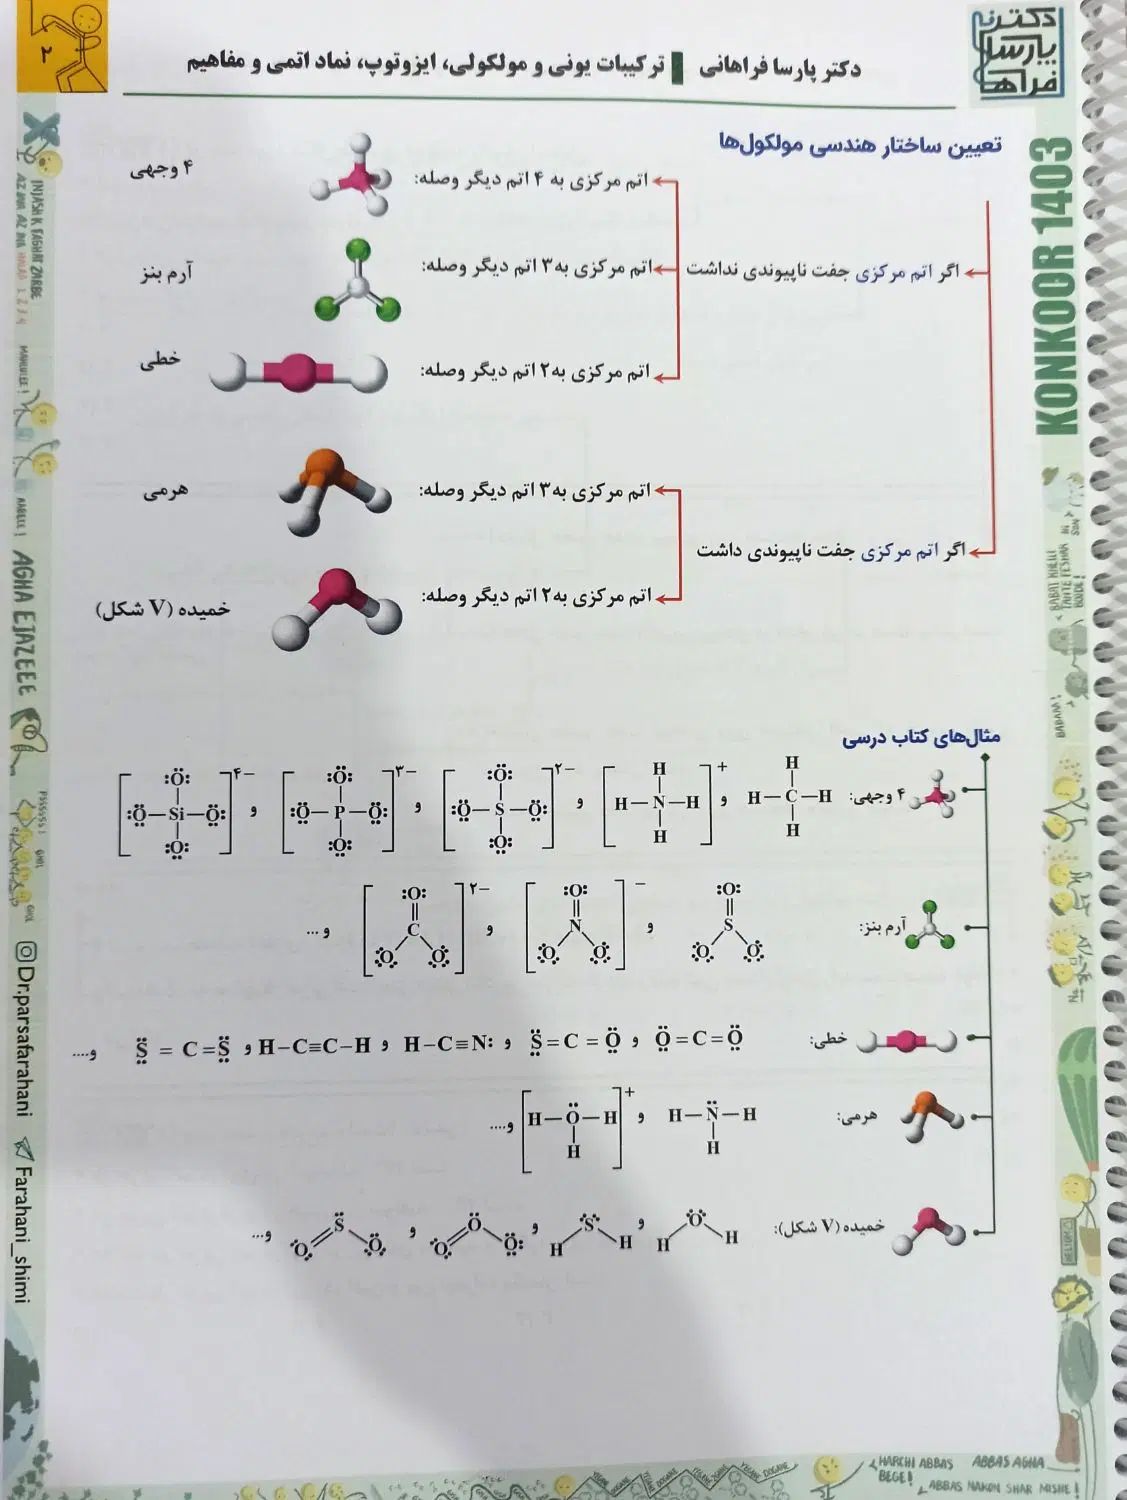 ۲
دکتر پارسا فراهانی ترکیبات یونی و مولکولی، ایزوتوپ، نماد اتمی و مفاهیم
دکتر پارسا فراهانی
تعیین ساختار هندسی مولکول‌ها
اگر اتم مرکزی جفت ناپیوندی نداشت
اتم مرکزی به ۴ اتم دیگر وصله:
۴ وجهی
اتم مرکزی به ۳ اتم دیگر وصله:
آرم بنز
اتم مرکزی به ۲ اتم دیگر وصله:
خطی
اگر اتم مرکزی جفت ناپیوندی داشت
اتم مرکزی به ۳ اتم دیگر وصله:
هرمی
اتم مرکزی به ۲ اتم دیگر وصله:
خمیده (V شکل)
مثال‌های کتاب درسی
۴ وجهی:
H
H—C—H
H
و
H
H—N—H
H
+
و
:Ö:
:Ö—S—Ö:
:O:
۲−
و
:Ö:
:Ö—P—Ö:
:O:
۳−
و
:Ö:
:Ö—Si—Ö:
:O:
۴−
آرم بنز:
:O:
S
O O
و
:O:
N
O O
−
و
:O:
C
O O
۲−
و ...
خطی:
Ö=C=Ö و S̈=C=Ö و H−C≡N: و H−C≡C−H و S̈=C=S̈ و....
هرمی:
H—N̈—H
H
و
H—Ö—H
H
+
و....
خمیده (V شکل):
O
H H
و
S
H H
و
Ö
O O:
و
S̈
O O
و...
KONKOOR 1403
INJASH K FAGHAT ZARBE
AGHA EJAZEEE
Dr.parsafarahani
Farahani_shimi
BABAT KHEILI
TAHTE FESHAR
BUDE!
BABAM!
HELIUM
HARCHI ABBAS
BEGE!
ABBAS AGHA
ABBAS NAKON SHAR MISHE!